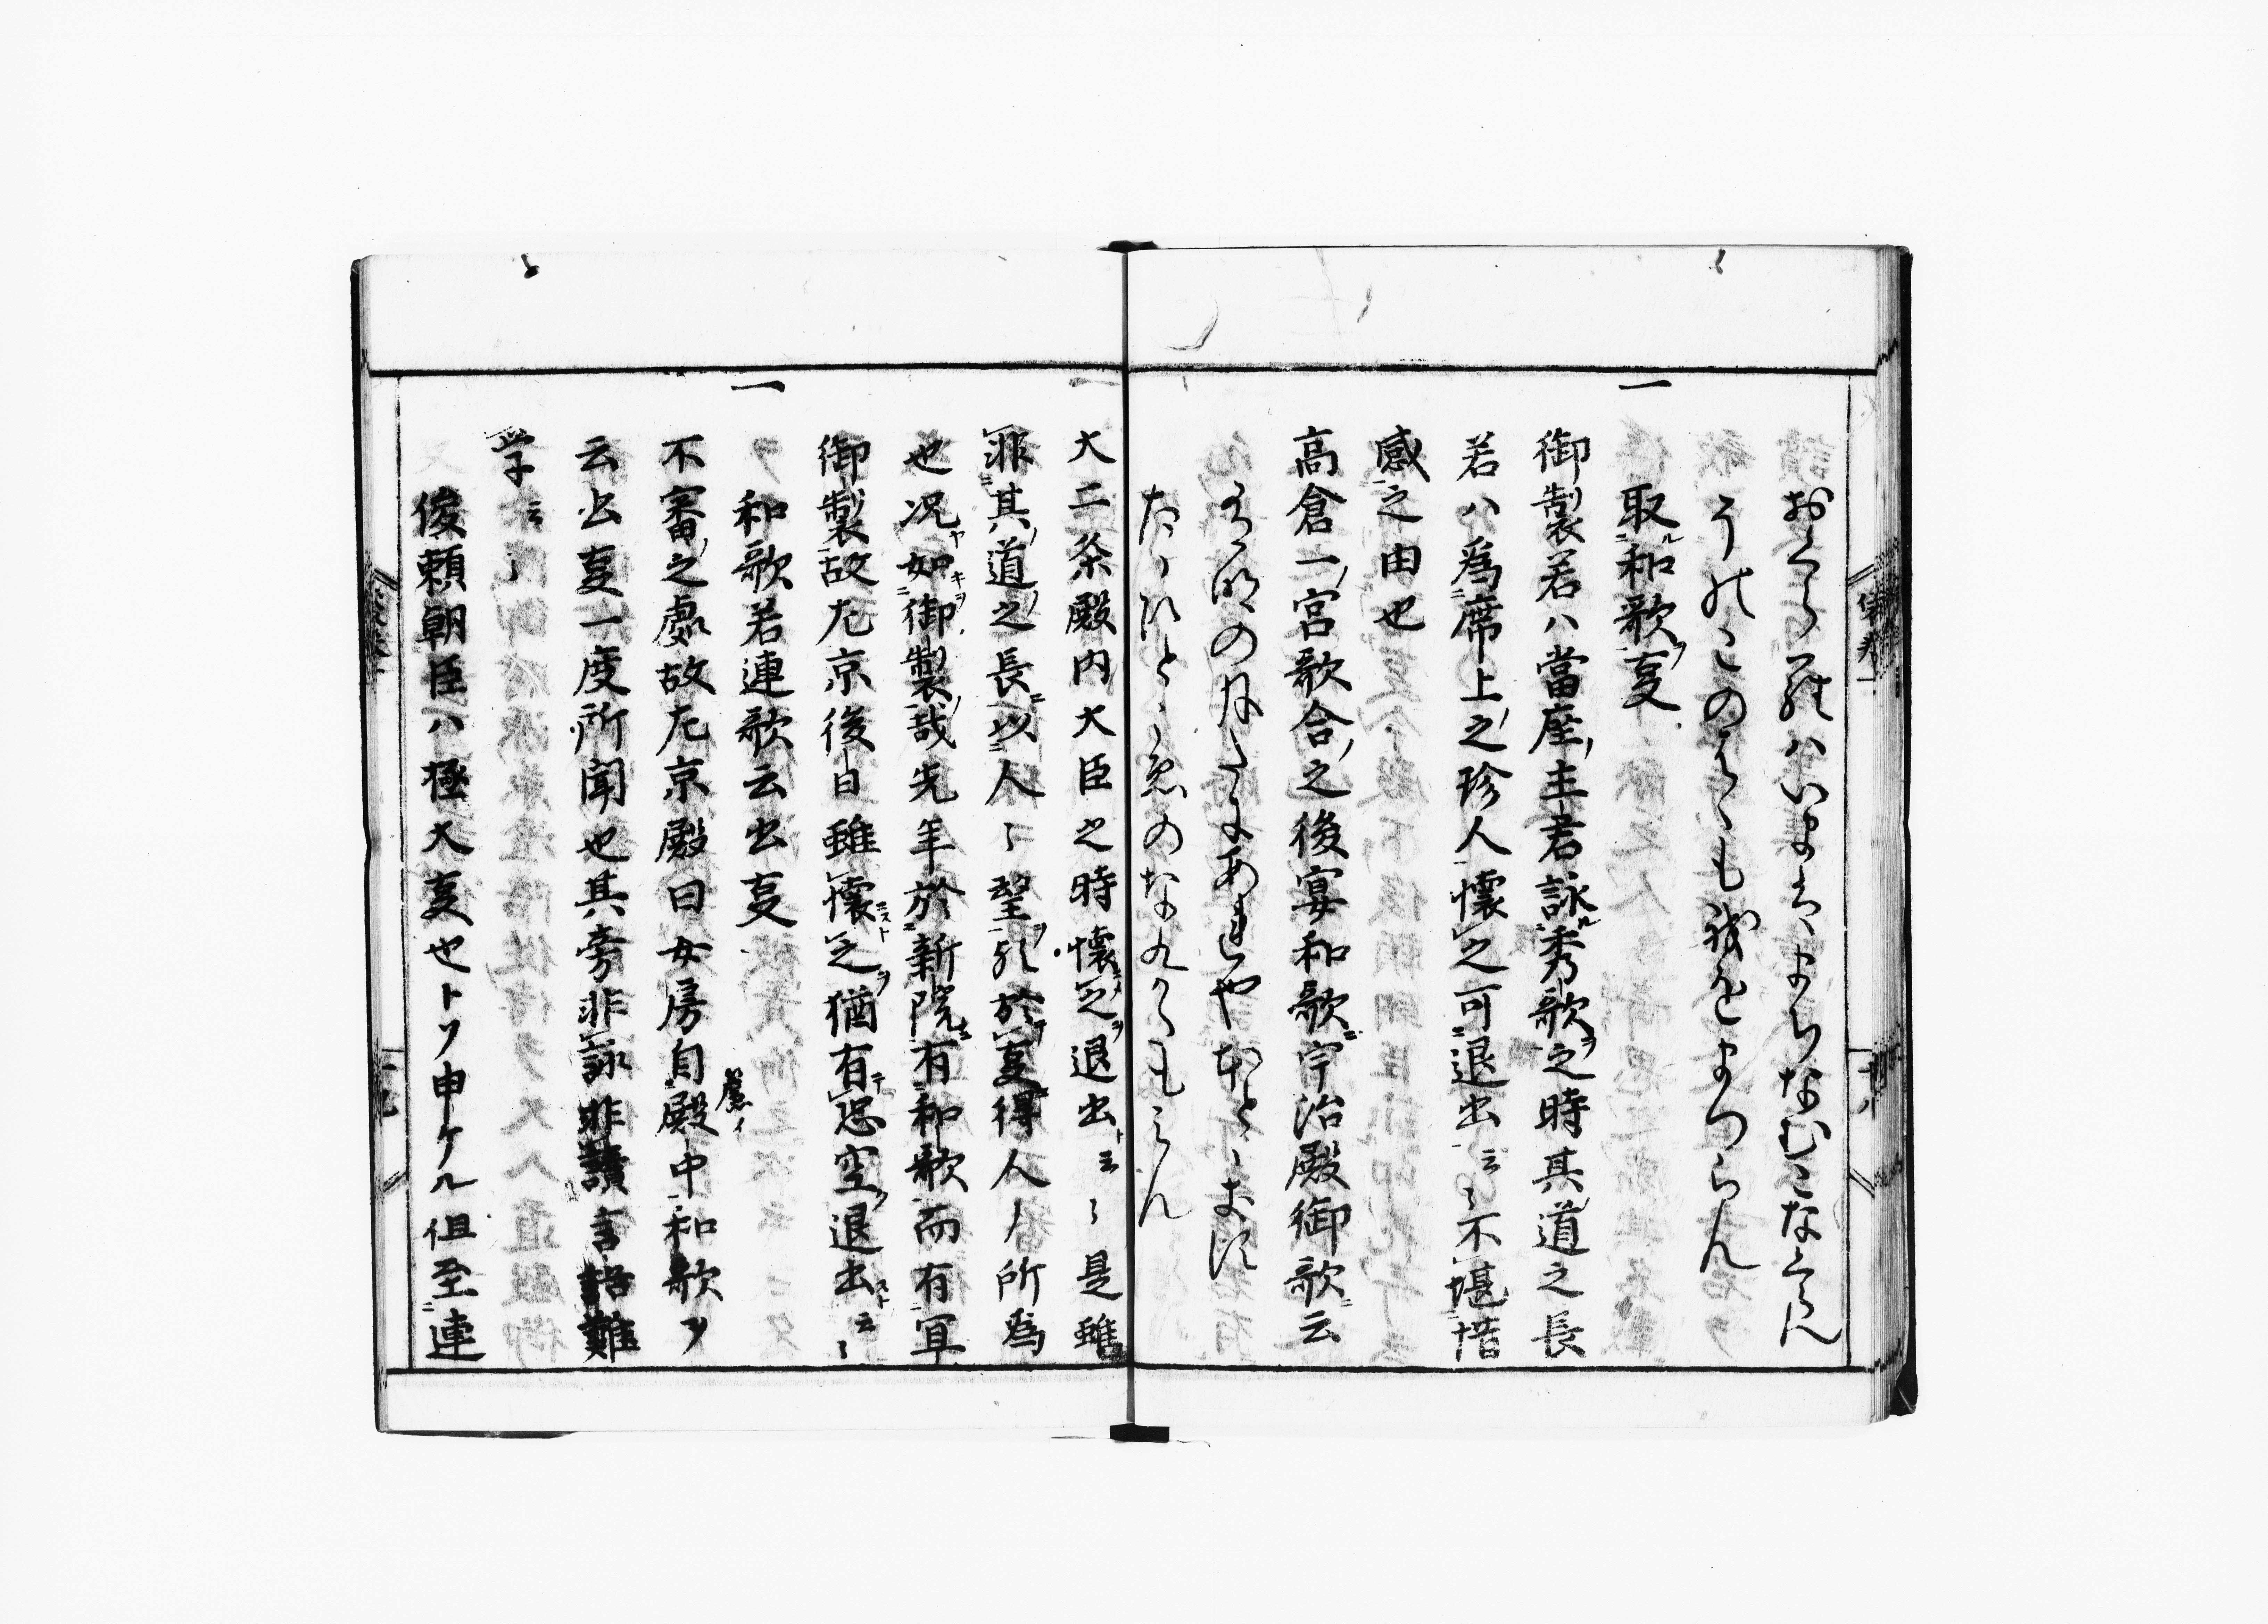 おくらゝハいまはまからなむこなくらん
そのこのはゝも我をまつらん
一 取和歌事
御製若ハ當座主君詠秀歌之時其道之長
若ハ為席上之珍人懐之可退出云〻不堪惜
感之由也
高倉一宮歌合之後宴和歌宇治殿御歌云
有明の月たにあれやほとゝきす
たゝひとこゑのなかもみん
大二条殿内大臣之時懐之退出云〻是雖
非其道之長以人〻望於事得人人所為
也况如御製哉先年於新院有和歌而有
御製故左京後日雖懐之猶有恐空退出云〻
一 和歌若連歌云出事
不審之處故左京殿曰女房自殿中和歌ヲ
簾イ
云出事一度所聞也其旁非詠非讀言語難
学云〻
俊頼朝臣ハ極大事也トソ申ケル但至連